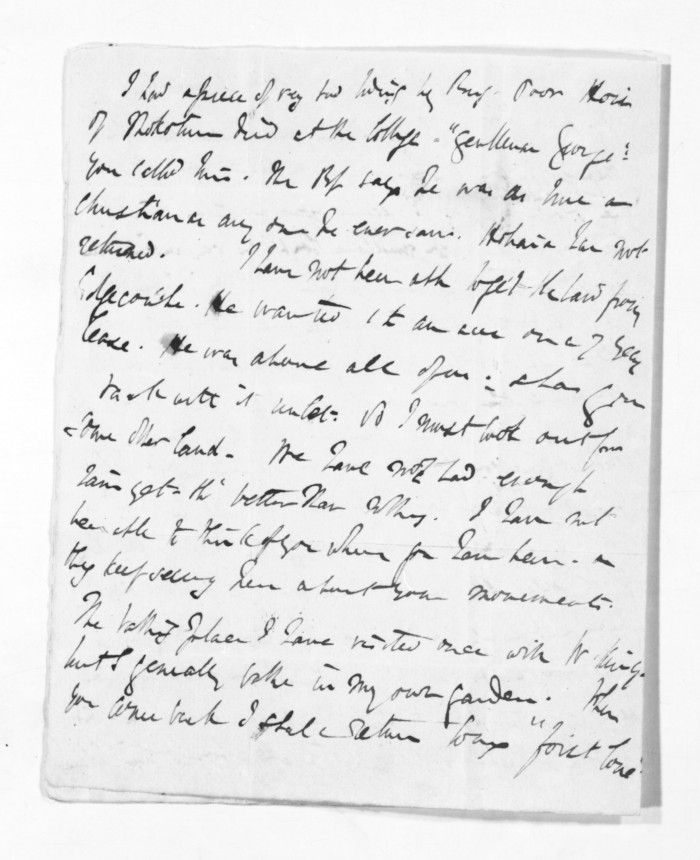 I had a piece of very sad by Poor
of died at the College - "Gentleman George"
you called him. The Bp says he was as true a
Christian as any one he ever saw. has not
returned. I have not been able to get the land from
Edgecombe. He wanted an acre on a 7 year
lease. He was above all of us: & has gone
back with it So I must look out for
some other land - We have not had enough
rain yet - tho' better than nothing. I have not
been able to think of you where you have been - as
they keep us here about your movements.
The bathing place I have visited once with W. King.
but I generally bathe in my own garden. When
you come back I shall return to my "first love"